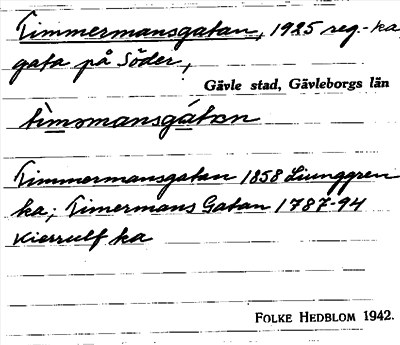 Timmermansgatan, 1925 reg.-ka,
gata på Söder,
Gävle stad, Gävleborgs län
tìmərmansgátan
Timmermansgatan 1858 Ljunggren
ka; Timermans Gatan 1787-94
Kierrulf ka
FOLKE HEDBLOM 1942.